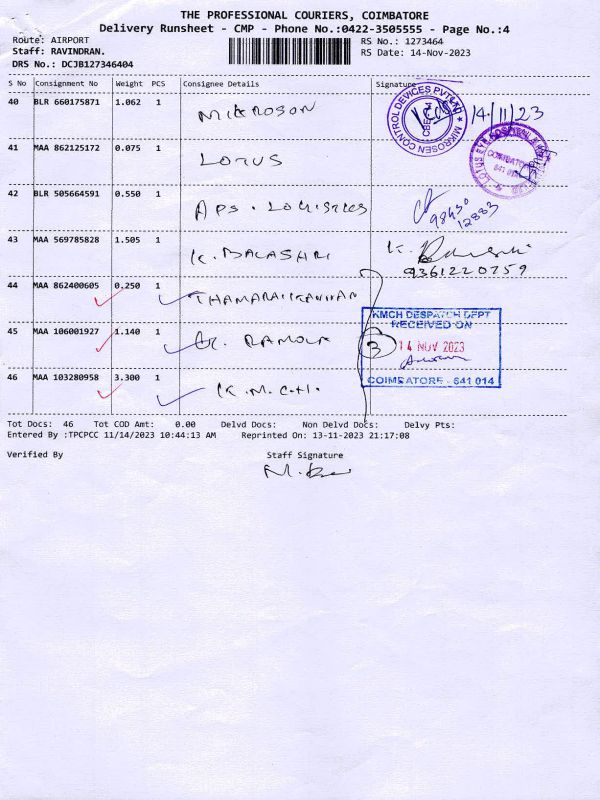 THE PROFESSIONAL COURIERS, COIMBATORE
Delivery Runsheet - CMP - Phone No.:0422-3505555 - Page No.:4
Route: AIRPORT RS No.: 1273464
Staff: RAVINDRAN. RS Date: 14-Nov-2023
DRS No.: DCJB127346404
S No Consignment No Weight PCS Consignee Details Signature
40 BLR 660175871 1.062 1 MIKROSON
MIKROSEN CONTROL DEVICES PVT LTD CBE 14/11/23
41 MAA 862125172 0.075 1 LOTUS
LOTUS EYE HOSPITAL COIMBATORE 641 014
42 BLR 505664591 0.550 1 APS. LOGISTICS
98430
12883
43 MAA 569785828 1.505 1 K. BALASHRI K.
9361220759
44 MAA 862400605 0.250 1 THAMARAIKANNAN
KMCH DESPATCH DEPT
RECEIVED ON
45 MAA 106001927 1.140 1 RAMOLA 3 14 NOV 2023
46 MAA 103280958 3.300 1 K.M.C.H. COIMBATORE - 641 014
Tot Docs: 46 Tot COD Amt: 0.00 Delvd Docs: Non Delvd Docs: Delvy Pts:
Entered By :TPCPCC 11/14/2023 10:44:13 AM Reprinted On: 13-11-2023 21:17:08
Verified By Staff Signature